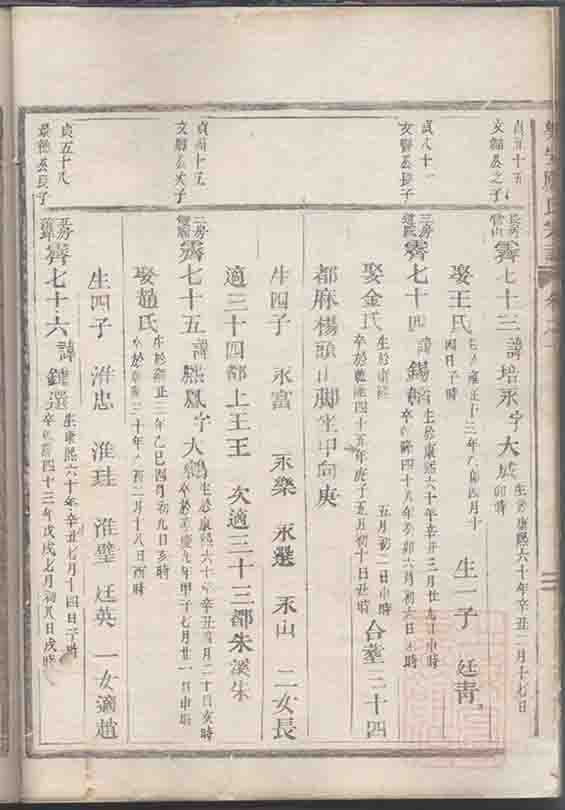 貞五十五
文錦公之子
長房
霽七十三 諱培永字大成 生於康熙六十年辛丑二月十七日卯時
娶王氏 生於雍正十三年乙卯四月十四日子時 生一子 廷靑
貞八十一
文縣公長子
三房
霽七十四 諱錫 生於康熙六十年辛丑三月廿九日申時
卒於乾隆四十八年癸卯六月初六日時
娶金氏 生於康熙 五月初二日申時 合塟三十四
卒於乾隆四十五年庚子五月初十日丑時
都麻楊頭山脚坐甲向庚
生四子 永富 永樂 永選 永山 二女長
適三十四都上王王 次適三十三都朱溪朱
文公次子
三房
霽七十五 諱熙鳳字大鶴 生於康熙六十年辛丑月二十日亥時
卒於嘉慶九年甲子七月廿一日申時
娶趙氏 生於雍正三年乙巳四月初九日亥時
卒於乾隆三十年乙酉二月十八日酉時
生四子 淮忠 淮珪 淮璧 廷英 一女適趙
貞五十八
景德公長子
霽七十六 諱鍾選 生康熙六十年辛丑七月十四日子時
卒乾隆四十三年戊戌七月初八日戌時